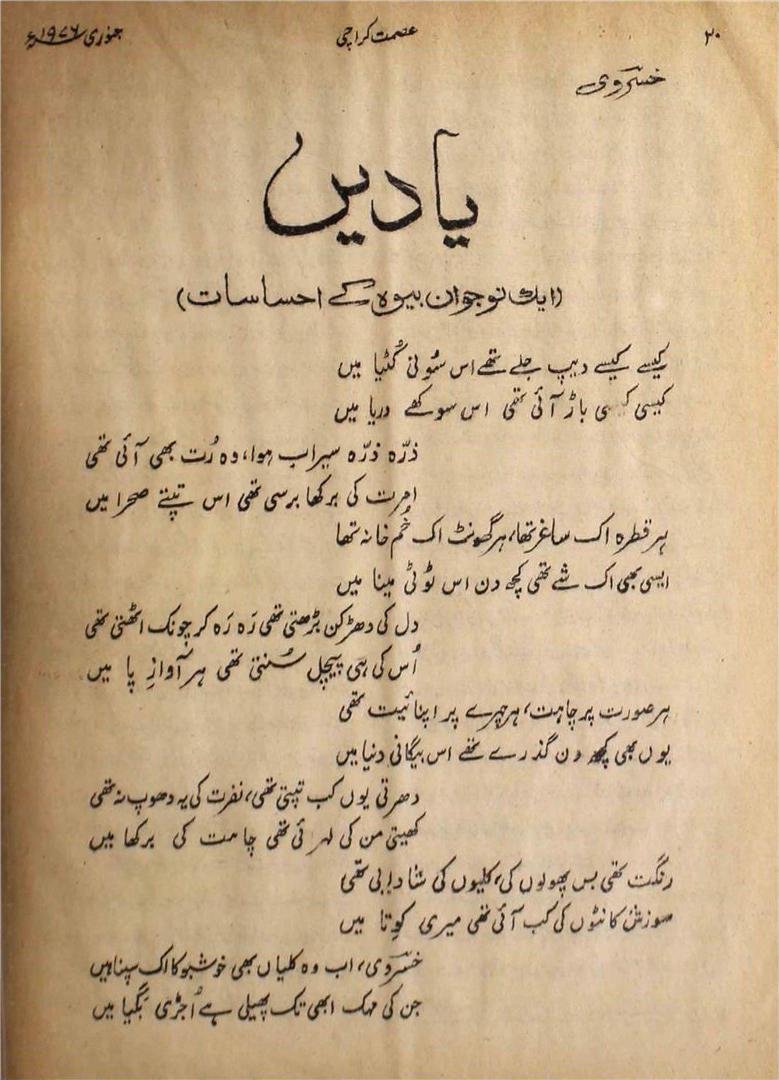 ۲۰ عصمت کراچی جنوری ۱۹۷۶ء
خسروی
یادیں
(ایک نوجوان بیوہ کے احساسات)
کیسے کیسے دیپ جلے تھے اس سُونی کُٹیا میں
کیسی کیسی باڑ آئی تھی اس سوکھے دریا میں
ذرّہ ذرّہ سیراب ہوا، وہ رُت بھی آئی تھی
امرت کی برکھا برسی تھی اس تپتے صحرا میں
ہر قطرہ اک ساغر تھا، ہر گھونٹ اک خُم خانہ تھا
ایسی بھی اک شے تھی کچھ دن اس ٹوٹی مینا میں
دل کی دھڑکن بڑھتی تھی رَہ رَہ کر چونک اٹھتی تھی
اُس کی ہی پیچل سُنتی تھی ہر آوازِ پا میں
ہر صورت پر چاہت، ہر چہرے پر اپنائیت تھی
یوں بھی کچھ دن گذرے تھے اس بیگانی دنیا میں
دھرتی یوں کب تپتی تھی، نفرت کی یہ دھوپ نہ تھی
کھیتی من کی لہرائی تھی چاہت کی برکھا میں
رنگت تھی بس پھولوں کی، کلیوں کی شادابی تھی
سوزش کانٹوں کی کب آئی تھی میری کوِتا میں
خسروی، اب وہ کلیاں بھی خوشبو کا اک سپنا ہیں
جن کی مہک ابھی تک پھیلی ہے اُجڑی بَگیا میں